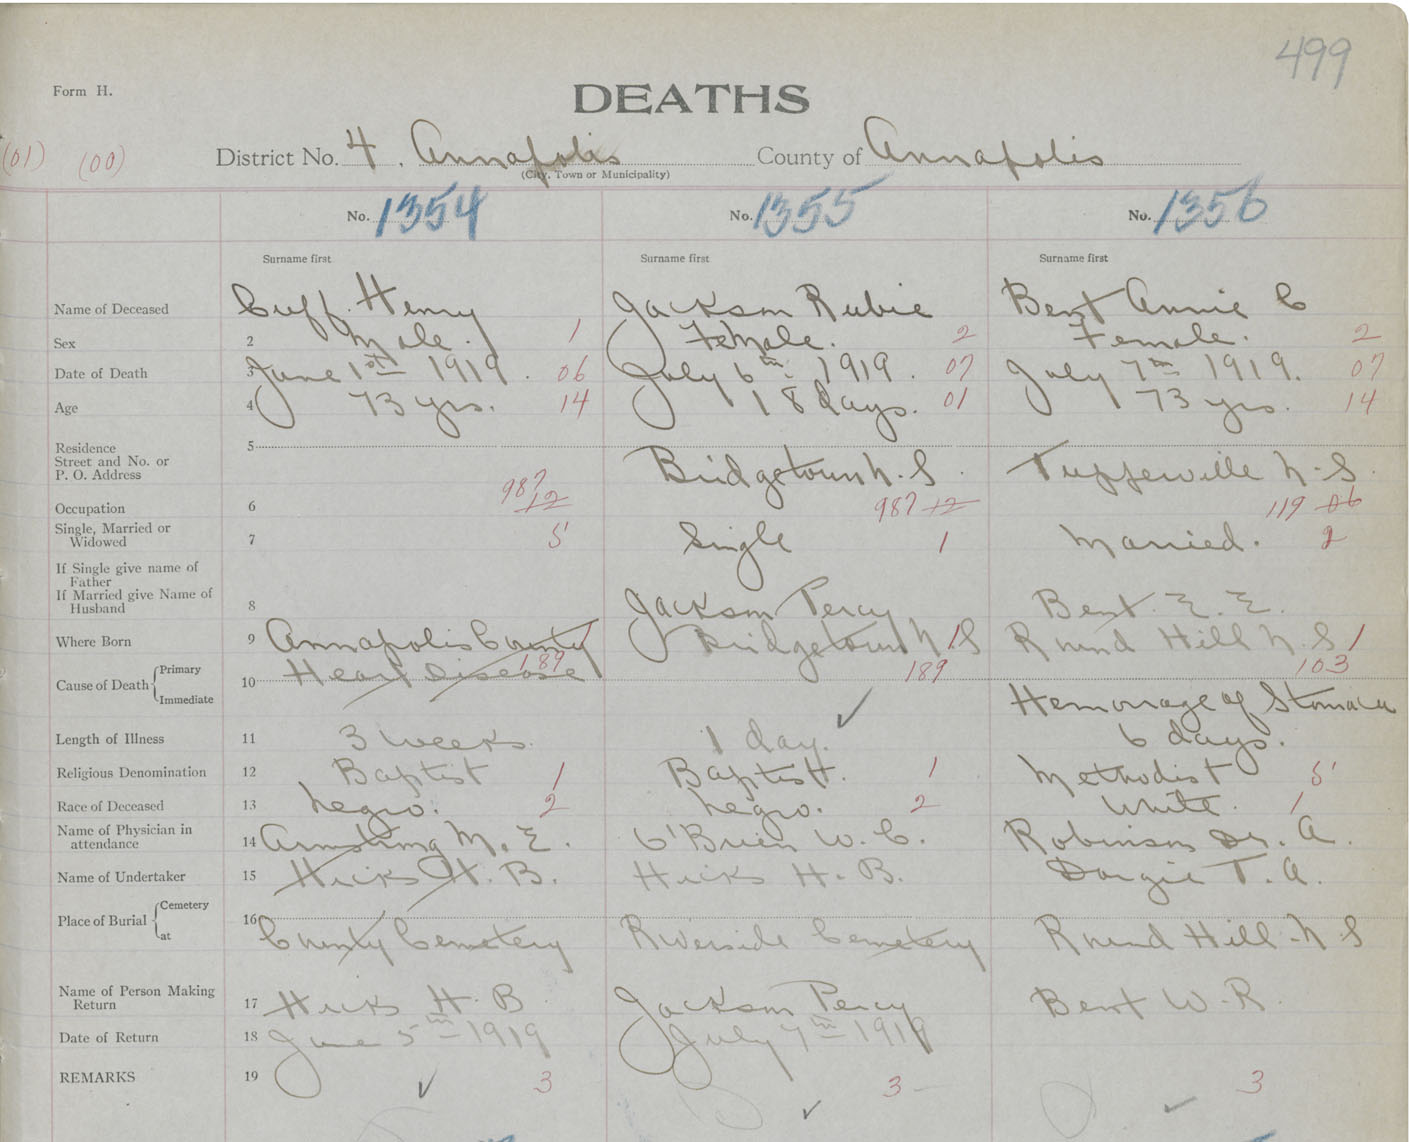 499
Form H.
DEATHS
(01) (00) District No. 4. Annapolis County of Annapolis
(City, Town or Municipality)
No. 1354 No. 1355 No. 1356
Surname first Surname first Surname first
Name of Deceased Cuff Henry Jackson Rubie Bent Annie C
Sex 2 Male. 1 Female. 2 Female. 2
Date of Death 3 June 1st 1919. 06 July 6th. 1919. 07 July 7th 1919. 07
Age 4 73 yrs. 14 18 days. 01 73 yrs. 14
Residence 5
Street and No. or
P. O. Address Bridgetown N.S. Tupperville N.S.
987 12 987 12 119 06
Occupation 6
Single, Married or
Widowed 7 5 Single 1 Married. 2
If Single give name of
Father
If Married give Name of
Husband 8 Jackson Percy Bent. E. E.
Where Born 9 Annapolis County 1 Bridgetown N.S 1 Round Hill N.S 1
189 189 103
Cause of Death Primary 10 Heart Disease
Immediate Hemorrage of Stomach
Length of Illness 11 3 weeks. 1 day. 6 days.
Religious Denomination 12 Baptist 1 Baptist. 1 Methodist 5
Race of Deceased 13 Negro. 2 Negro. 2 White. 1
Name of Physician in
attendance 14 Armstrong M. E. O'Brien W. C. Robinson Dr. A.
Name of Undertaker 15 Hicks H. B. Hicks H. B. Dargie T. A.
Place of Burial Cemetery 16
at County Cemetery Riverside Cemetery Round Hill N S
Name of Person Making
Return 17 Hicks H. B Jackson Percy Bent W. R.
Date of Return 18 June 5th 1919 July 7th 1919
REMARKS 19 3 3 3